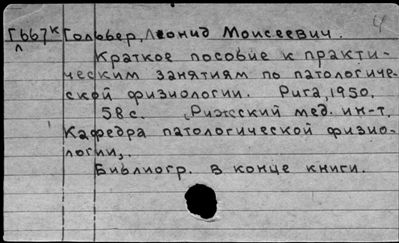 4
Г667к Гольбер, Леонид Моисеевич.
Л
Краткое пособие к практи-
ческим занятиям по патологиче-
ской физиологии. Рига, 1950.
58 с. (Рижский мед. ин-т.
Кафедра патологической физио-
логии).
Библиогр. в конце книги.